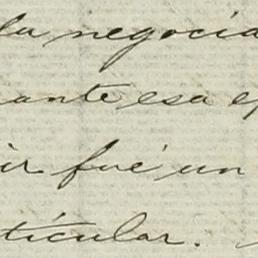 la negocia
ante esa e
ir fué un
ticular.